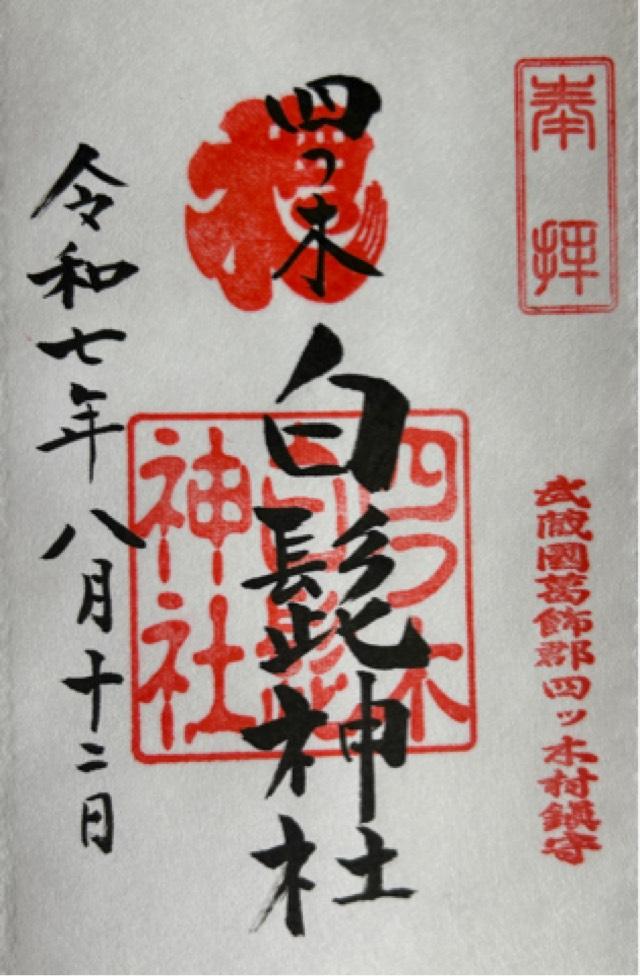 奉拝
武蔵國葛飾郡四ッ木村鎮守
四つ木
白髭神社
四つ木
白髭
神社
令和七年八月十二日